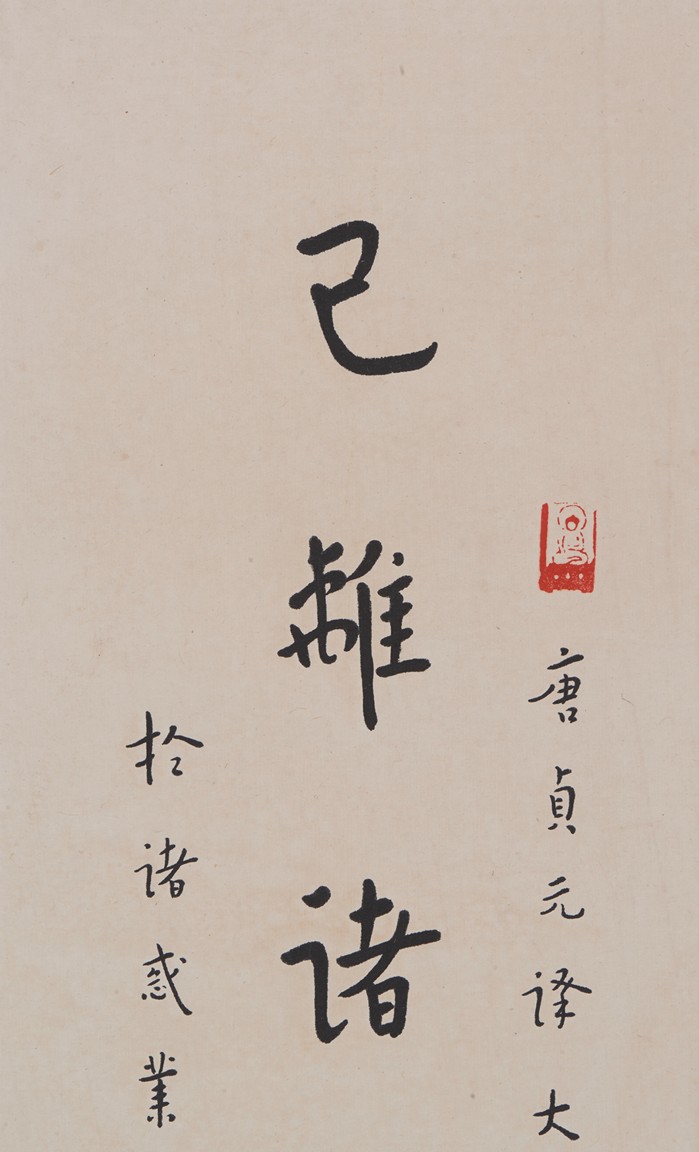 唐貞元译大
已離诸
於诸惑業